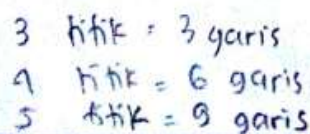 3 titik = 3 garis
4 titik = 6 garis
5 titik = 9 garis